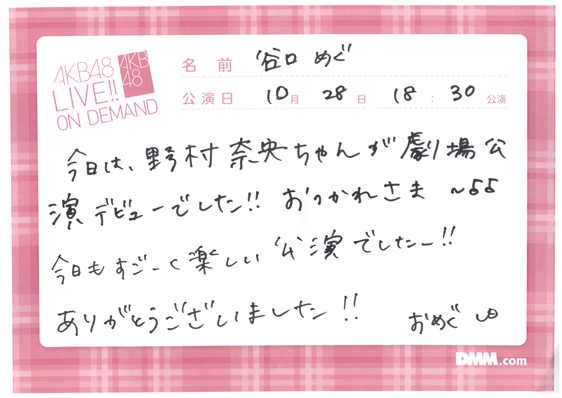 AKB48
LIVE!!
ON DEMAND
AKB
48
名前 谷口 めぐ
公演日 10月 28日 18:30公演
今日は、野村奈央ちゃんが劇場公
演デビューでした!! おつかれさま〜δδ
今日もすごーく楽しい公演でしたー!!
ありがとうございました!!
おめぐ
DMM.com